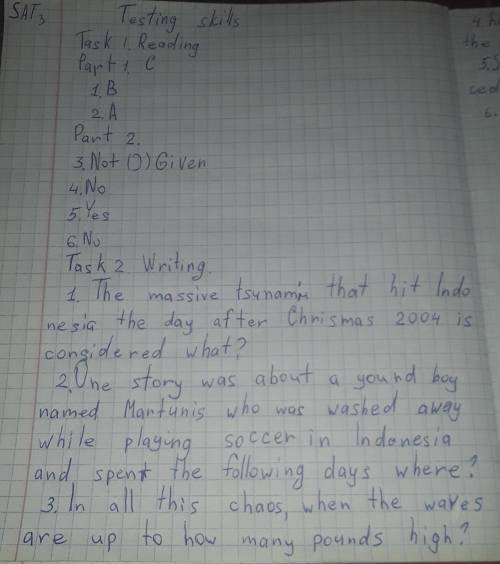 SAT3 Testing skills
Task 1. Reading
Part 1. C
1. B
2. A
Part 2.
3. Not Given
4. No
5. Yes
6. No
Task 2. Writing.
1. The massive tsunami that hit Indo
nesia the day after Chrismas 2004 is
considered what?
2. One story was about a yound boy
named Martunis who was washed away
while playing soccer in Indonesia
and spent the following days where?
3. In all this chaos, when the waves
are up to how many pounds high?
4.
the
5. S
ced
6.